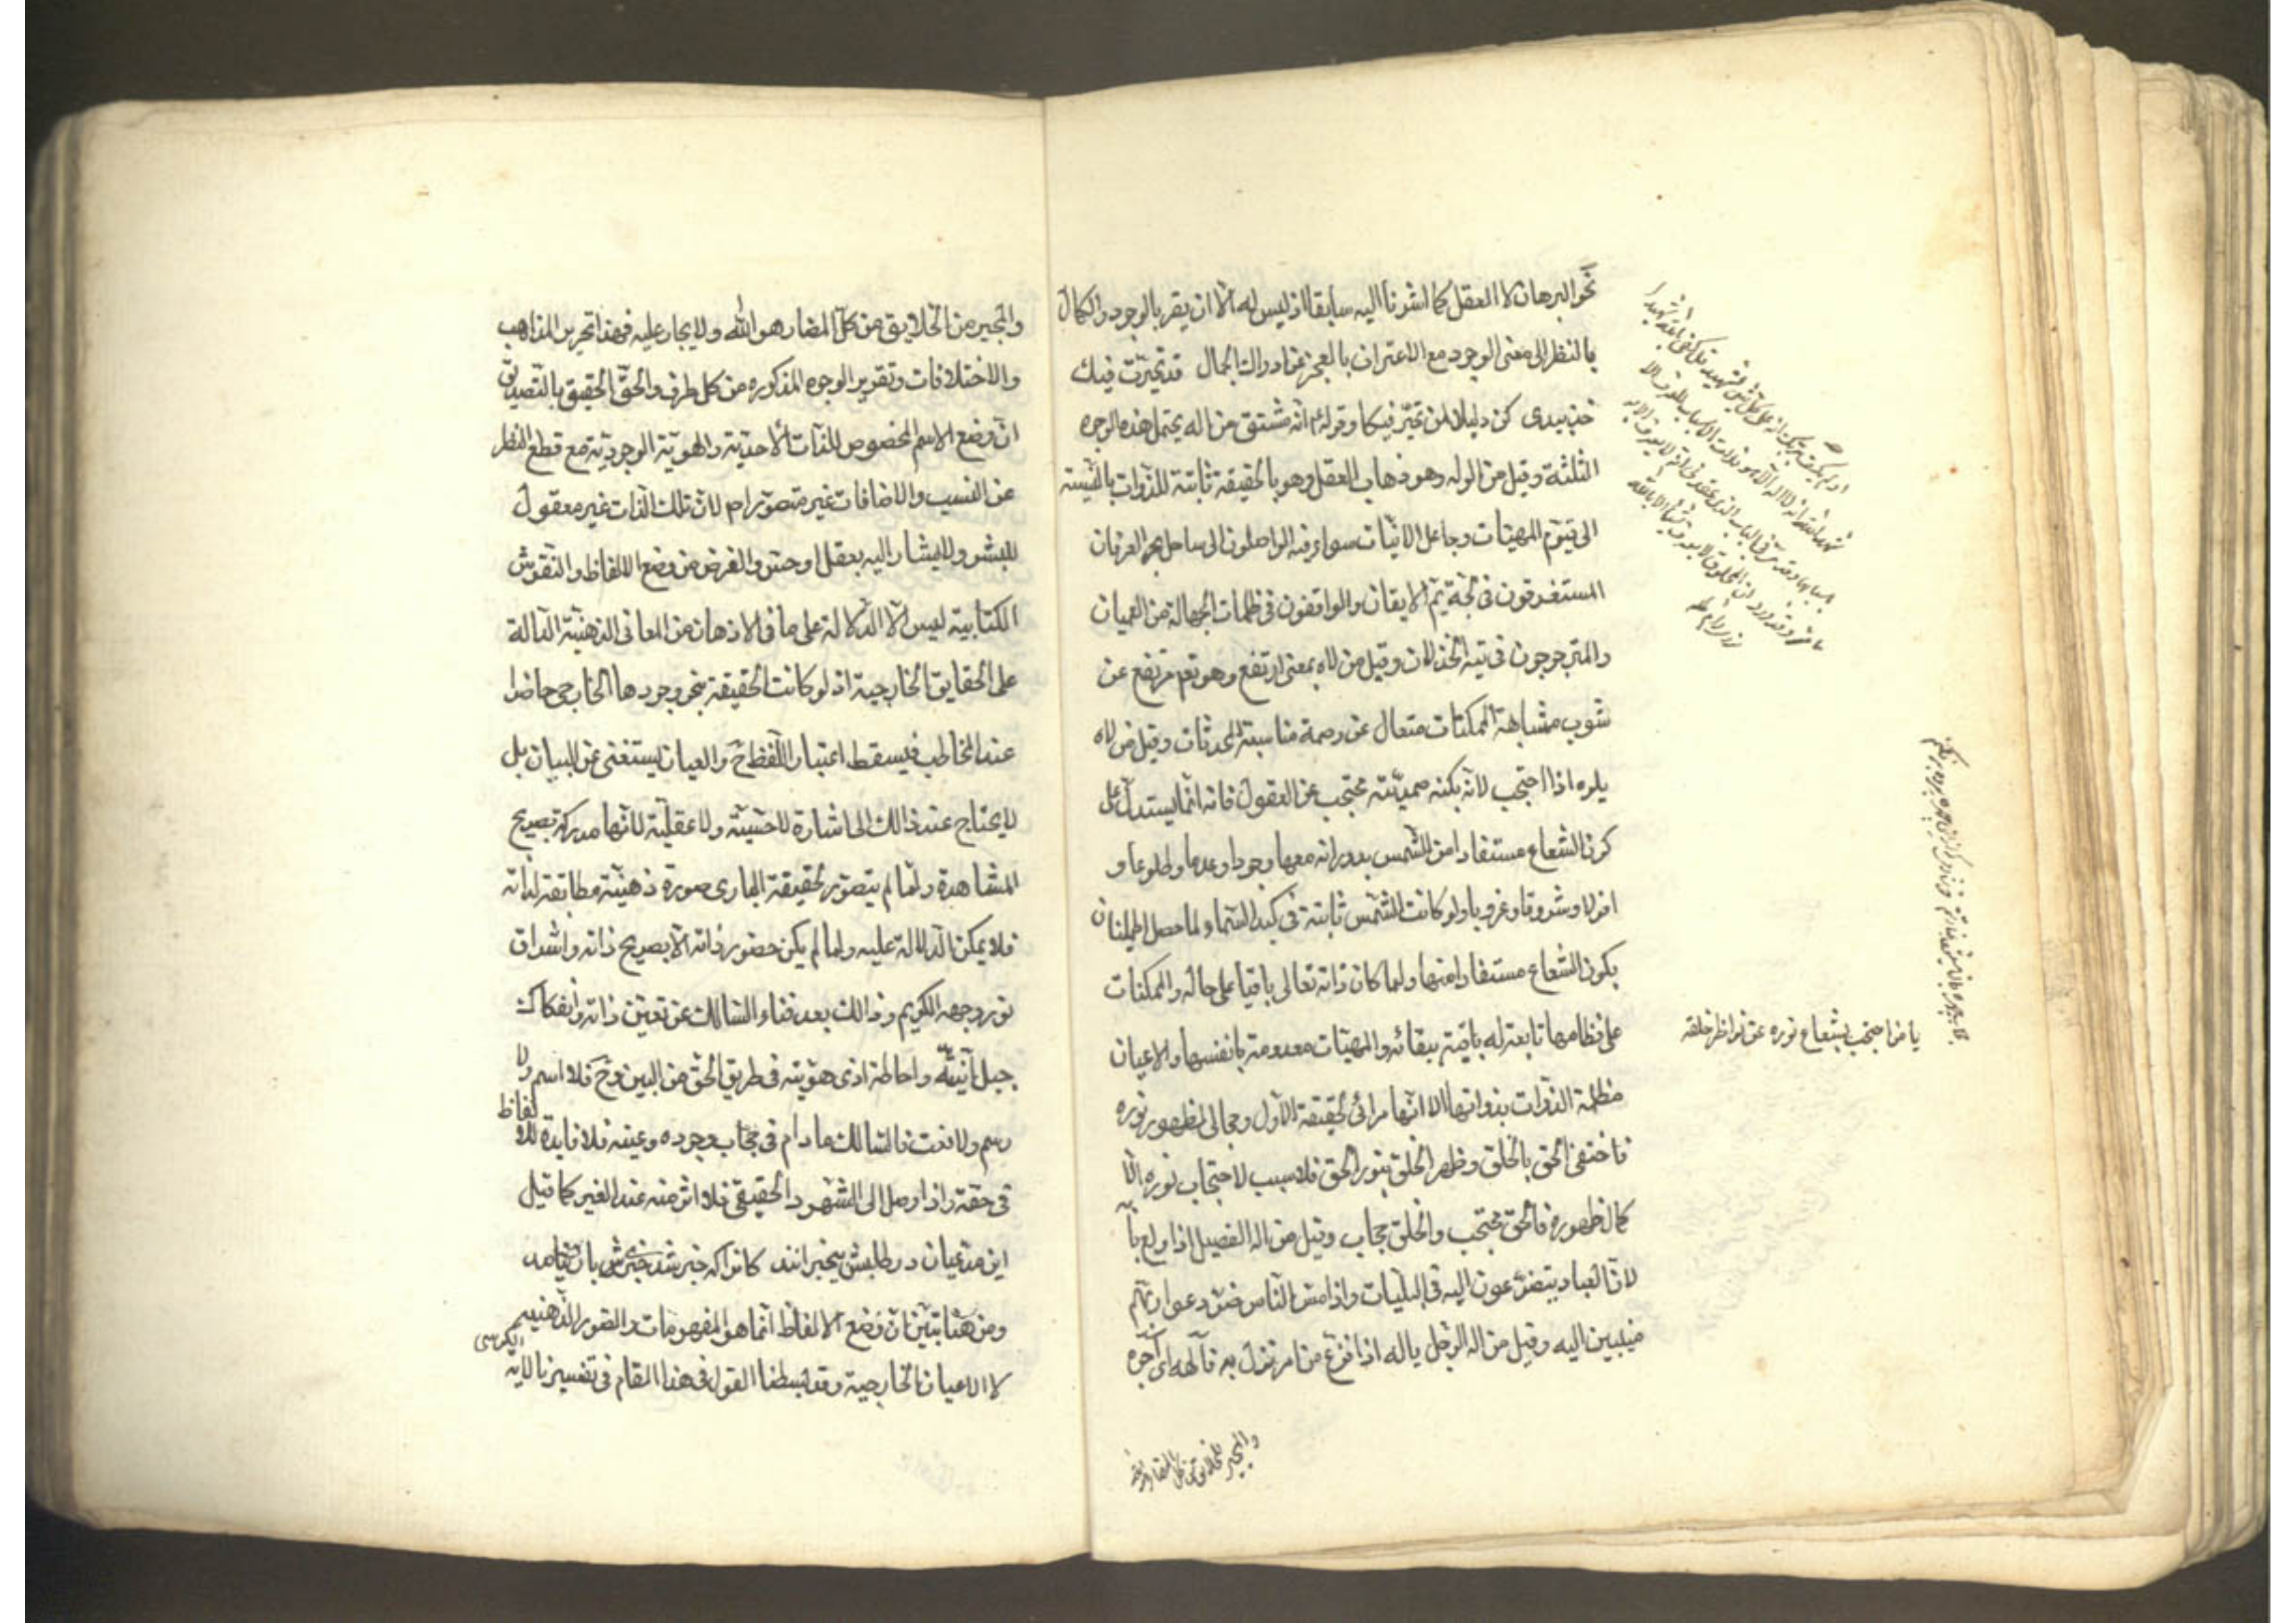 نحو البرهان لا العقل كما اشرنا اليه سابقا اذ ليس له الا ان يقر بالوجود والكمال
بالنظر الى معنى الوجود مع الاعتراف بالعجز عن ادراك الجمال قد تحيرت فيك
خذ بيدى كن دليلا لمن تحير فيكا وقولهم انه مشتق من اله يحتمل هذه الوجوه
الثلثة وقيل من الوله وهو ذهاب العقل وهو بالحقيقة ثابتة للذوات بالنسبة
الى قيوم المهيات وجاعل الانيات سواء فيه الواصلون الى ساحل بحر العرفان
المستغرقون فى لجة يم الايقان والواقفون فى ظلمات الجهالة من العميان
والمتزحزحون فى تيه الخذلان وقيل من لاه بمعنى ارتفع وهو تعم مرتفع عن
شوب مشابهة الممكنات متعال عن وصمة مناسبة المحدثات وقيل من لاه
يلوه اذا احتجب لانه بكنه صمديته محتجب عن العقول فانه انما يستدل على
كون الشعاع مستفادا من الشمس بدورانه معها وجودا وعدما وطلوعا و
افولا وشروقا وغروبا ولو كانت الشمس ثابتة فى كبد السماء لما حصل اطمئنان
بكون الشعاع مستفادا منها ولما كان ذاته تعالى باقيا على حاله والممكنات
على نظامها تابعة له باقية ببقائه والمهيات معدومة بانفسها والاعيان
مظلمة الذوات بذواتها الا انها مرائى لحقيقة الاول ومجالى لظهور نوره
فاختفى الحق بالخلق وظهر الخلق بنور الحق فلا سبب لاحتجاب نوره الا
كمال ظهوره فالحق محتجب والخلق حجاب وقيل من اله الفصيل اذا ولع بامه
لان العباد يتضرعون اليه فى البليات واذا مس الناس ضر دعوا ربهم
منيبين اليه وقيل من اله الرجل ياله اذا فزع من امر نزل به فآلهه اى آجره
يا من احتجب بشعاع نوره عن نواظر خلقه
والمجير للخلائق من كل المضار
والمجير من الخلايق من كل المضار هو الله ولا يجار عليه فهذا تحرير المذاهب
والاختلافات وتقرير الوجوه المذكوره من كل طرف والحق الحقيق بالتصديق
ان وضع الاسم المخصوص للذات الاحدية والهوية الوجودية مع قطع النظر
عن النسب والاضافات غير متصور ام لان تلك الذات غير معقول
للبشر ولا يشار اليه بعقل او حس والغرض من وضع الالفاظ والنقوش
الكتابية ليس الا الدلالة على ما فى الاذهان من المعانى الذهنية الدالة
على الحقايق الخارجية اذ لو كانت الحقيقة بنحو وجودها الخارجى حاضرا
عند المخاطب فيسقط اعتبار اللفظ ح والعيان يستغنى عن البيان بل
لا يحتاج عند ذالك الى اشارة لا حسية ولا عقلية لانها مدركة بصريح
المشاهدة ولما لم يتصور لحقيقة البارى صورة ذهنية مطابقة لذاته
فلا يمكن الدلالة عليه ولما لم يكن حضور ذاته الا بصريح ذاته واشراق
نور وجهه الكريم وذالك بعد فناء السالك عن تعين ذاته وانفكاك
جبل انيته واحاطة اذى هويته فى طريق الحق من البين وح فلا اسم ولا
رسم ولا نعت فالسالك ما دام فى حجاب وجوده وعينه فلا فايدة للالفاظ
فى حقه واذا وصل الى الشهود الحقيقى فلا اثر منه عند الغير كما قيل
اين مدعيان در طلبش بيخبرانند كانرا كه خبر شد خبرى باز نيامد
ومن هنا تبين ان وضع الالفاظ انما هو المفهومات والصور الذهنيه
لا الاعيان الخارجية وقد بسطنا القول فى هذا المقام فى تفسيرنا لاية الكرسى